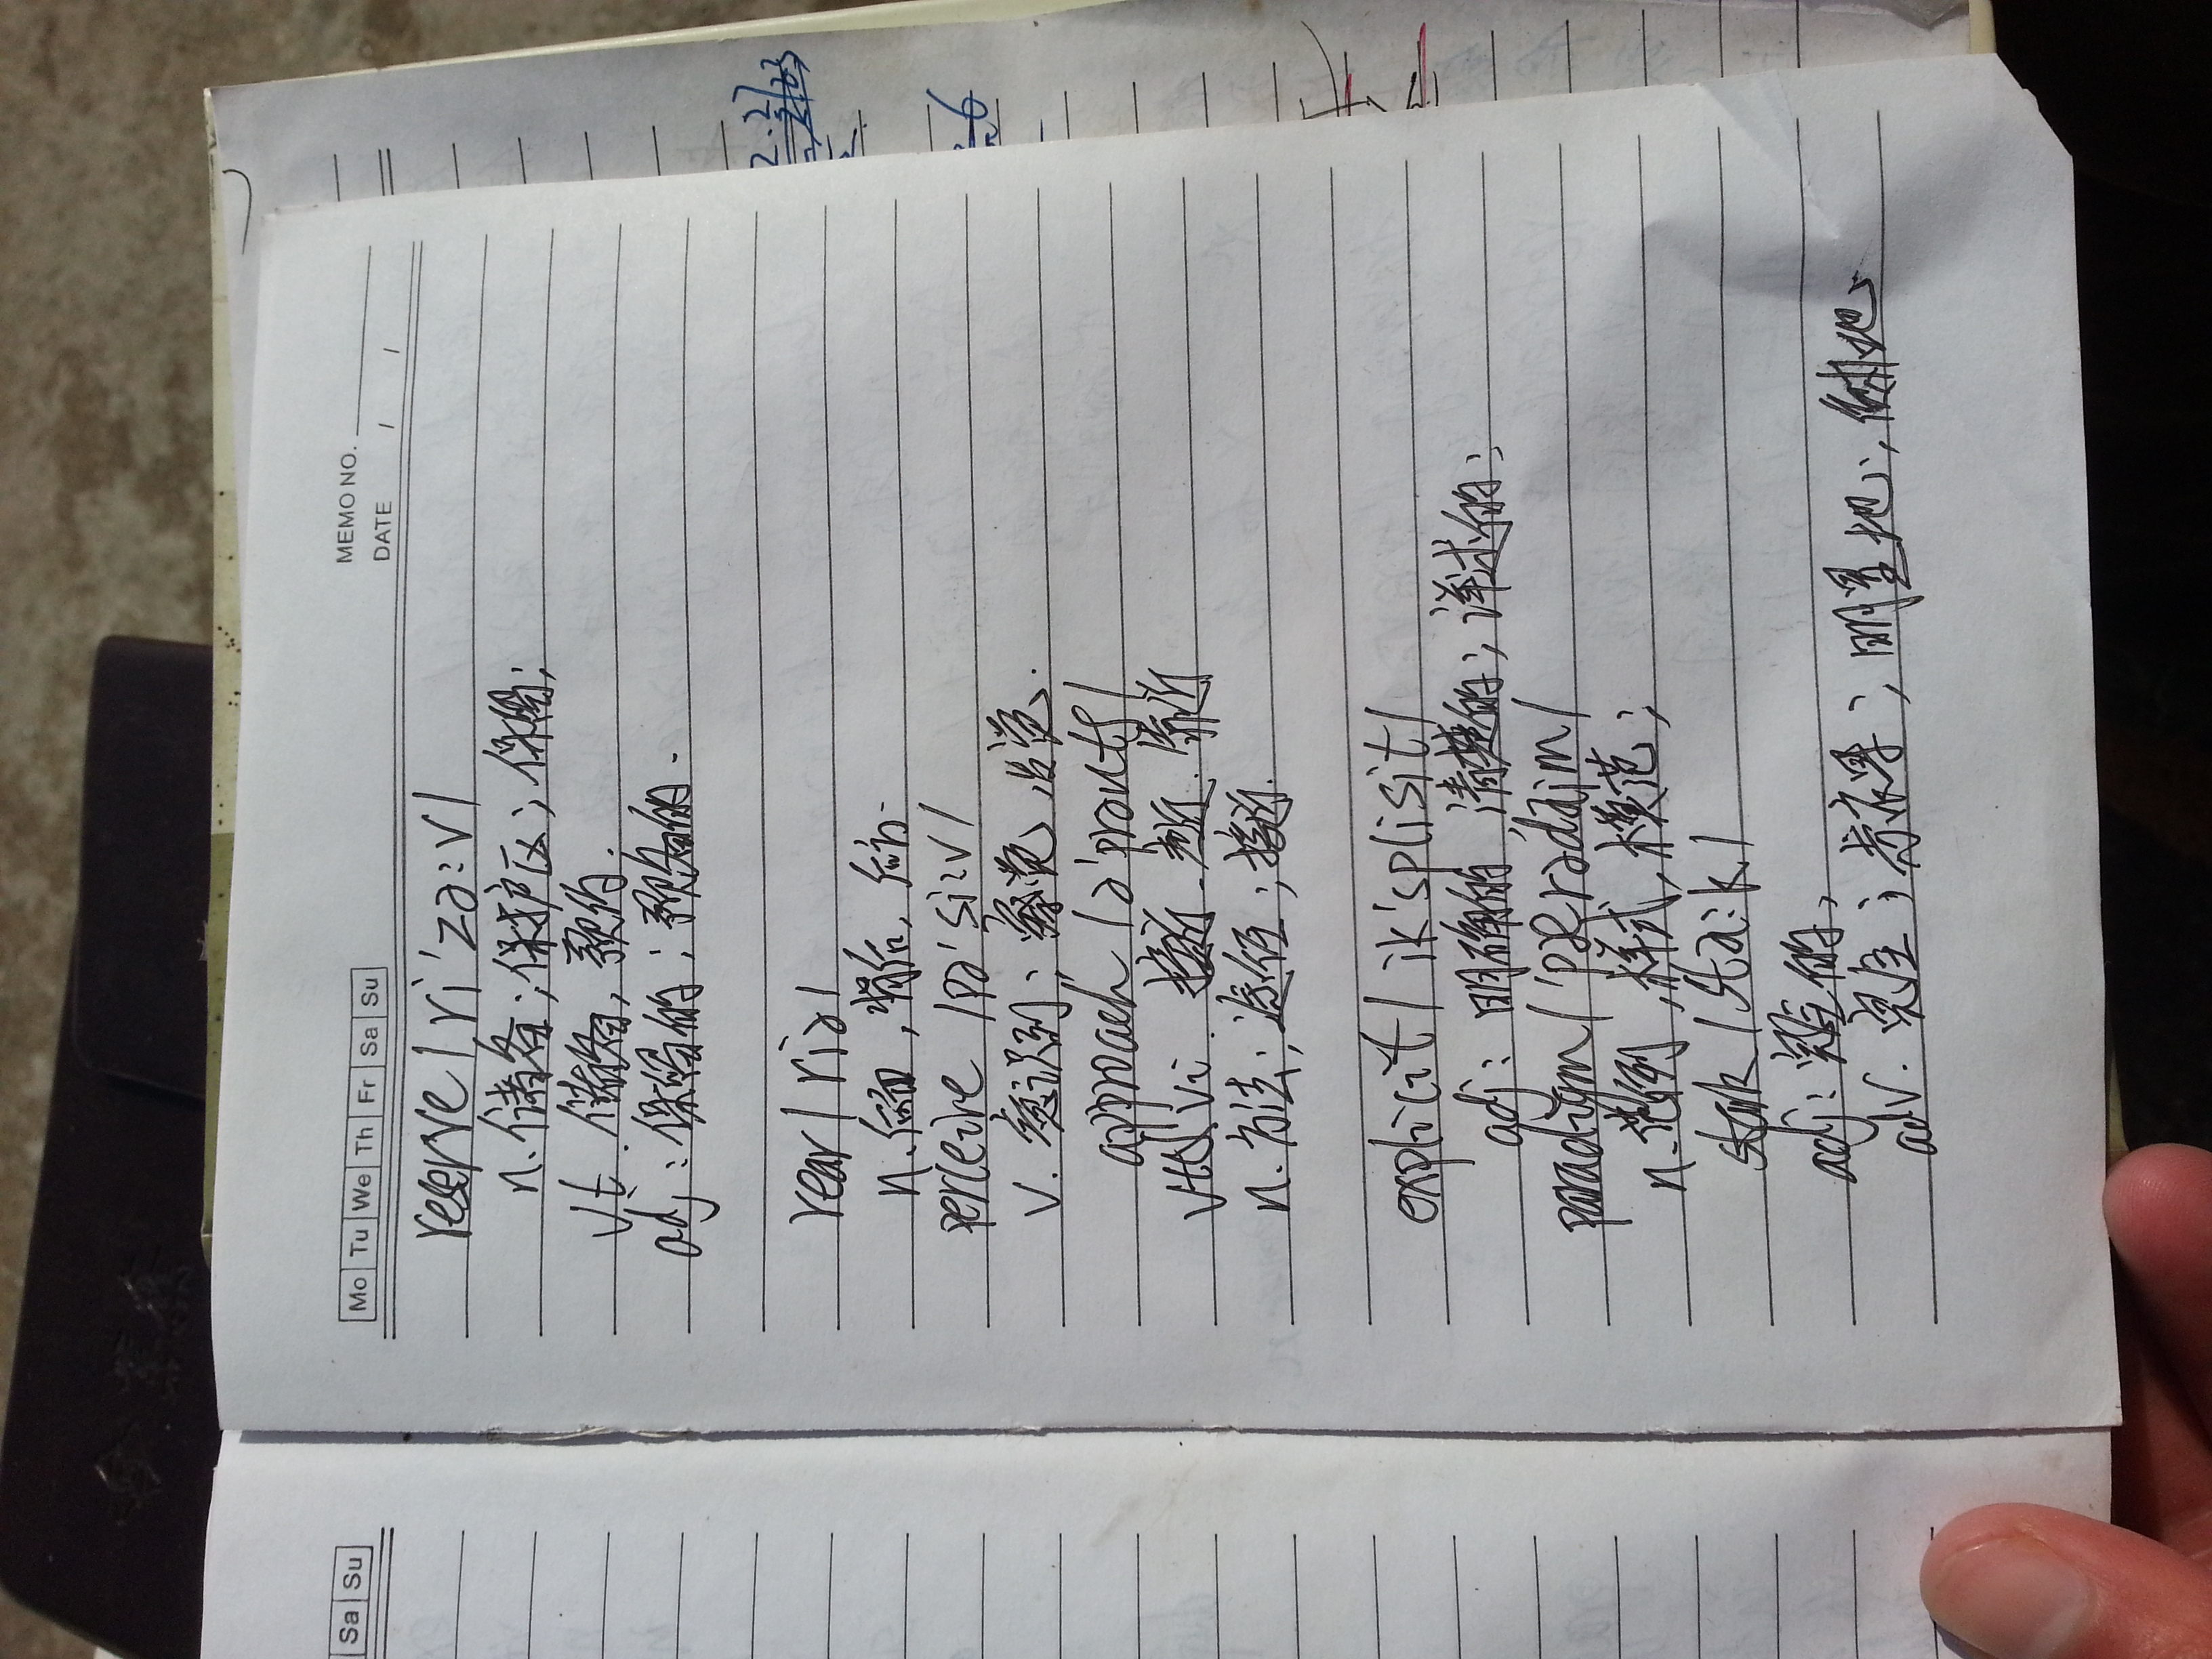 Sa Su
Mo Tu We Th Fr Sa Su
MEMO NO.
DATE / /
reserve /ri'zə:v/
n. 储备；保护区；保留；
vt. 储备，预约.
adj：保留的；预备的.
rear /riə/
n. 后面，背后，后方.
perceive /pə'si:v/
v. 意识到；察觉，发觉.
approach /ə'prəutʃ/
vt&vi. 接近. 走近. 靠近
n. 方法；途径；接近.
explicit /ik'splisit/
adj：明确的，清楚的；详述的；
paradigm /'pærədaim/
n. 范例，样式，模范；
stark /sta:k/
adj：完全的，
adv. 完全；明显地；
2.27